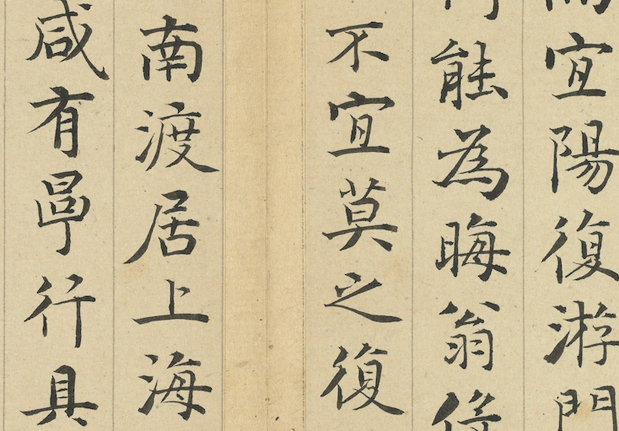 宜陽復游門
能為晦翁
不宜莫之復
南渡居上海
咸有學行具